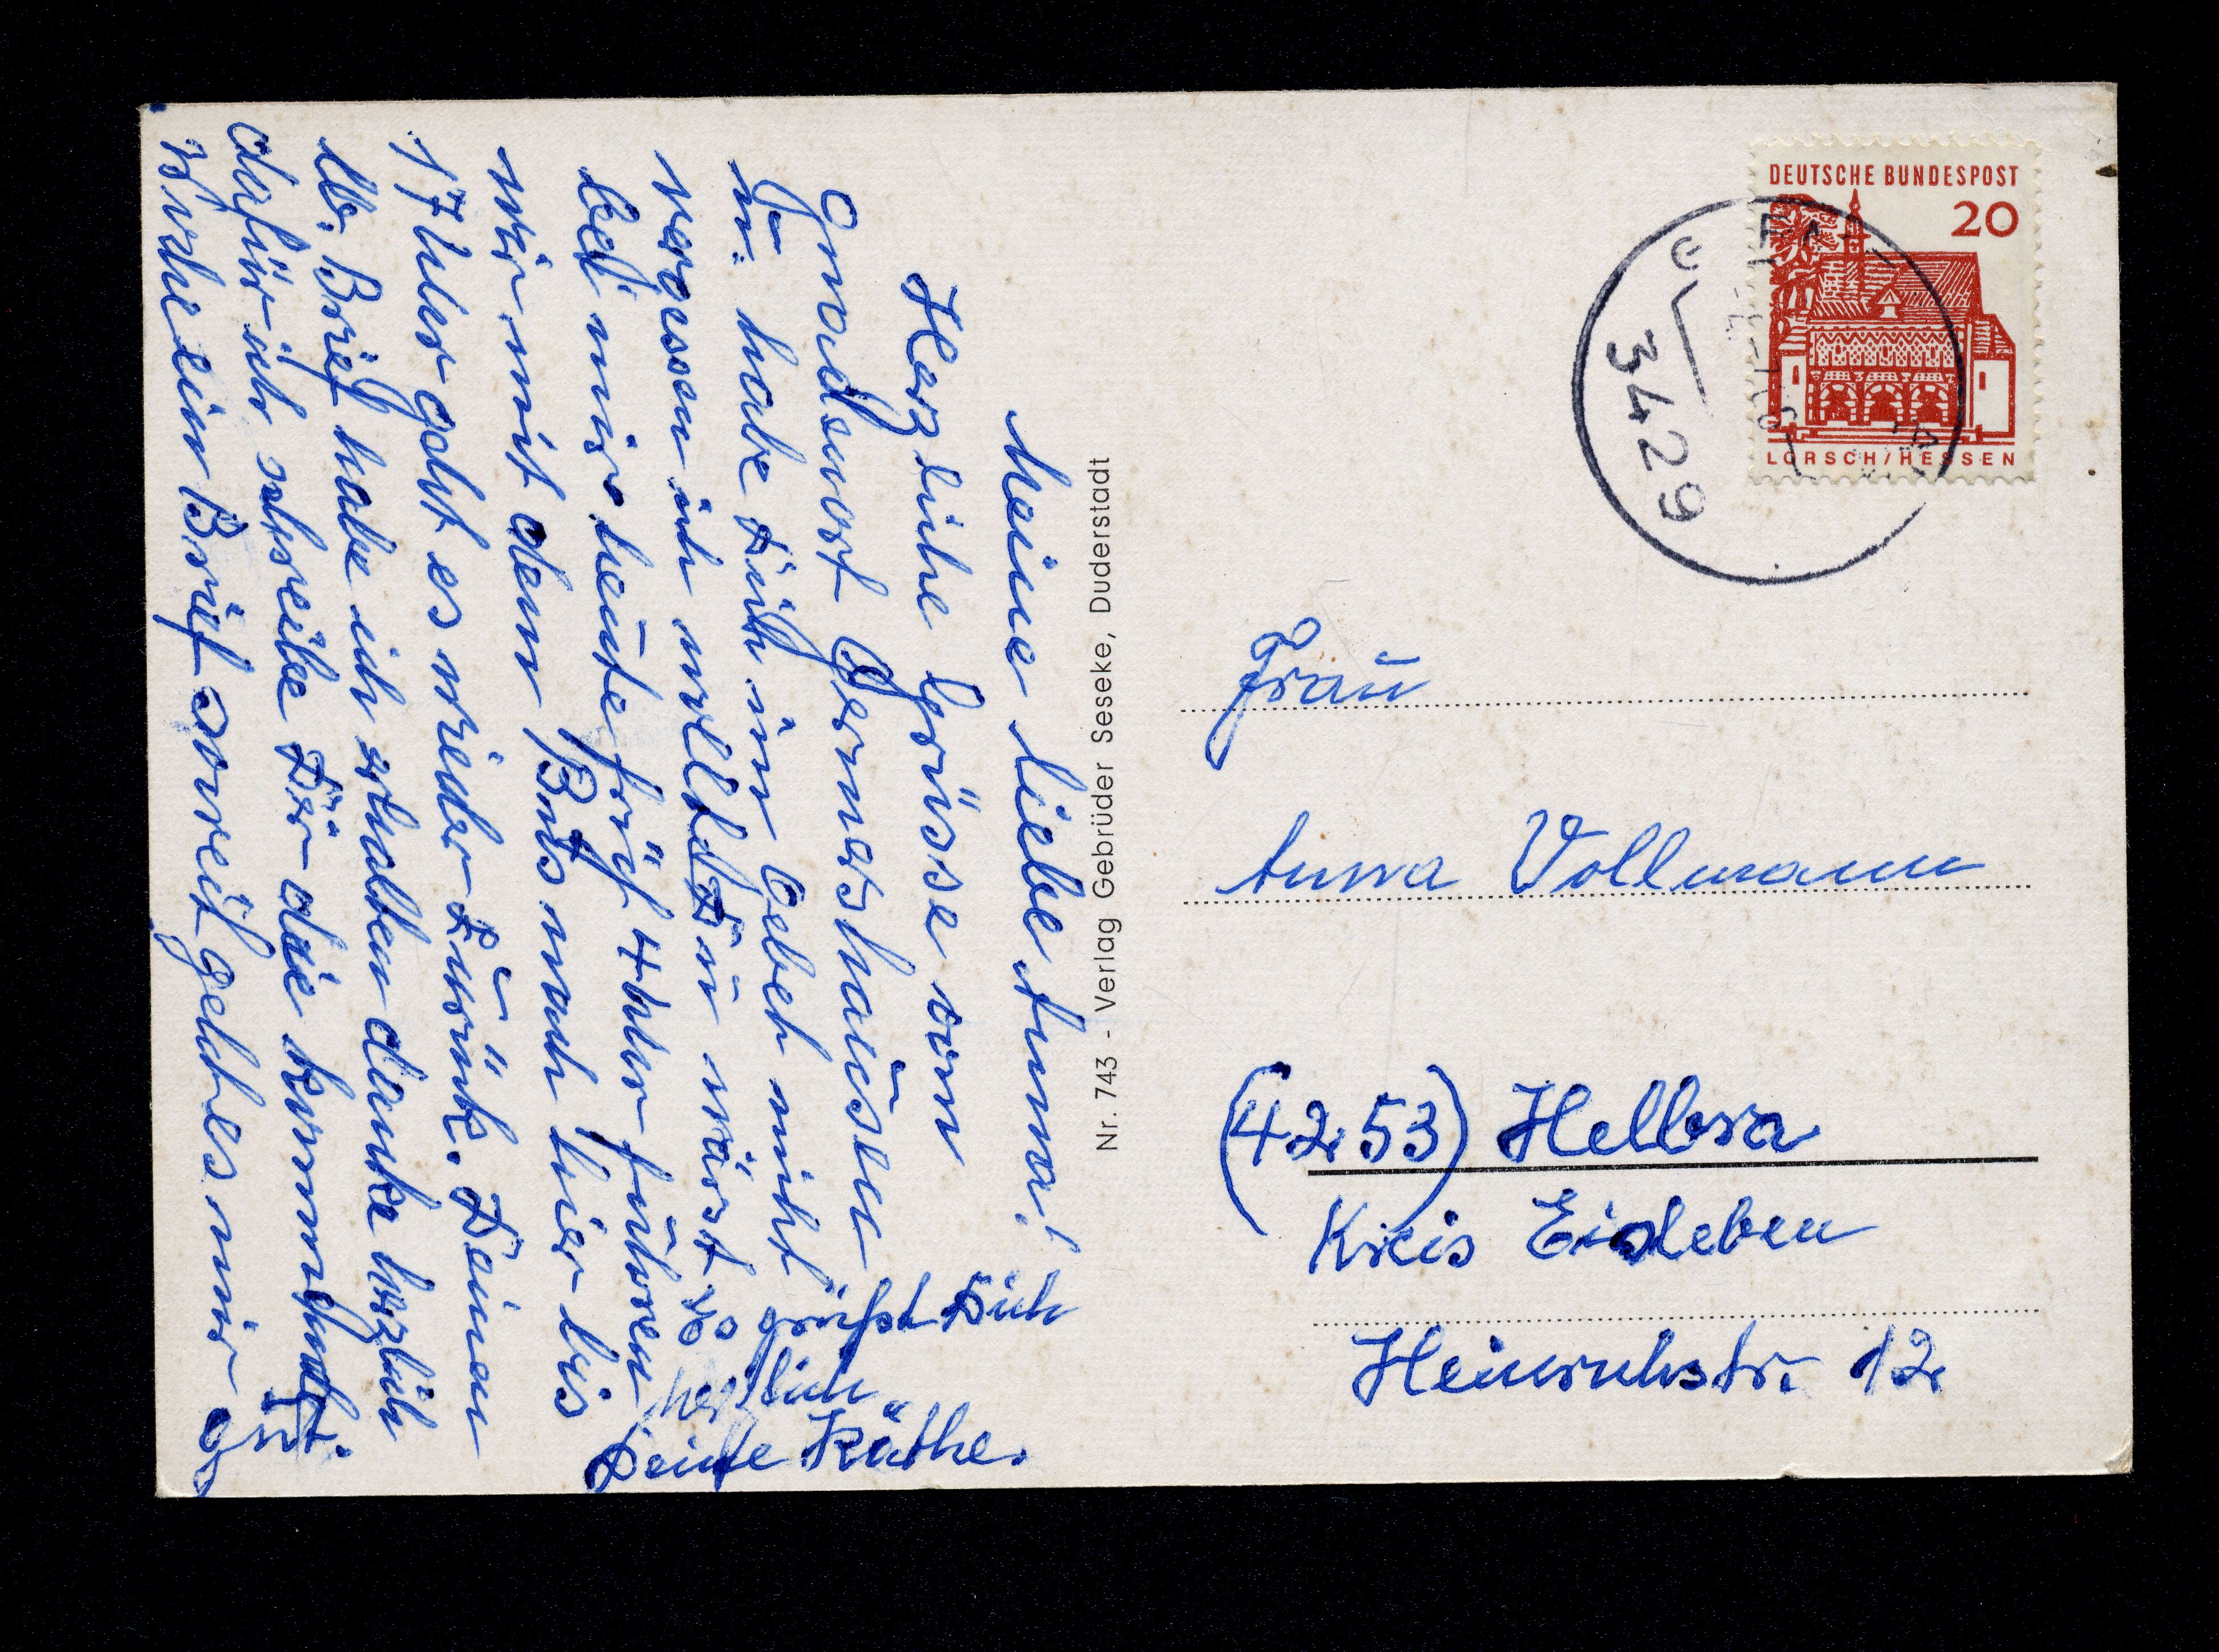 Meine liebe Anna!
Herzliche Grüsse vom
Gnadenort Germershausen
Ja habe Dich im Gebet nicht
vergessen ich wollte Du wärst
bei mir heute früh 4 Uhr fuhren
wir mit dem Bus nach hier bis
17 Uhr geht es wieder zurück. Deinen
lb. Brief habe ich erhalten danke herzlich
dafür ich schreibe Dir die kommende
Woche ein Brief soweit geht es mir
gut.
Es grüßt Dich
herzlich
Deine Käthe.
Nr. 743 - Verlag Gebrüder Seseke, Duderstadt
DEUTSCHE BUNDESPOST
20
LORSCH/HESSEN
3429
Frau
Anna Vollmann
(4253) Helbra
Kreis Eisleben
Heinrichstr. 12